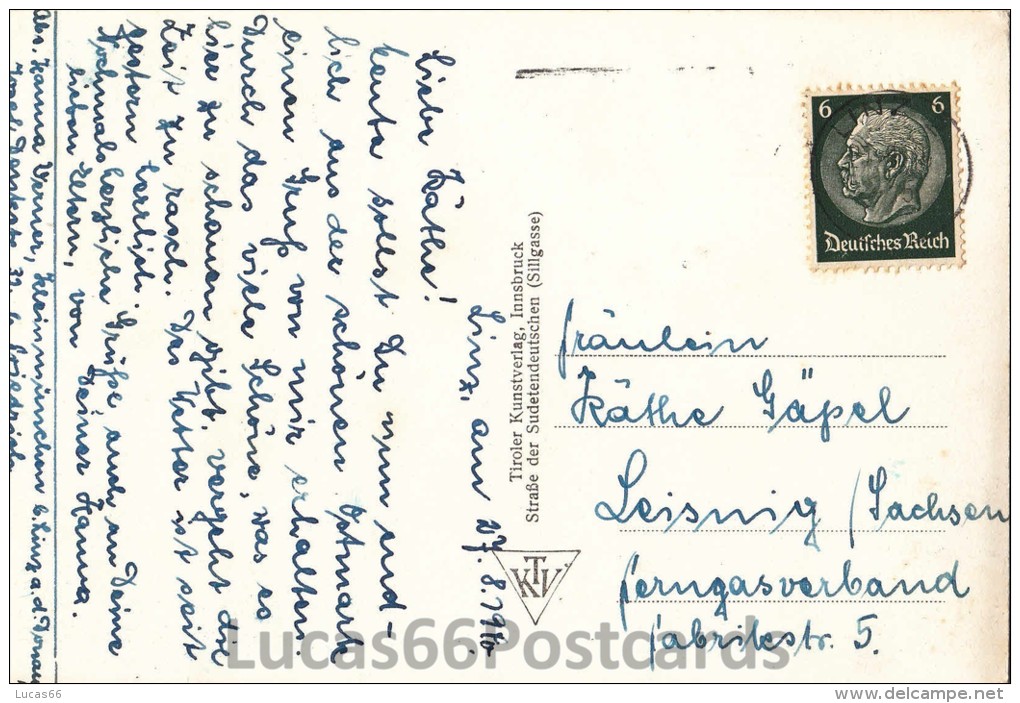 Linz, am 27. 8. 1940.
Liebe Käthe!
heute sollst Du nun end-
lich aus der schönen Ostmark
einen Gruß von mir erhalten.
Durch das viele Schöne, was es
hier zu schauen gibt, vergeht die
Zeit zu rasch. Das Wetter ist seit
gestern herrlich.
Nochmals herzliche Grüße, auch an Deine
lieben Eltern, von Deiner Hanna.
Abs. Hanna Verner, Kleinmünchen b. Linz a. d. Donau
6 6
Deutsches Reich
Tiroler Kunstverlag, Innsbruck
Straße der Sudetendeutschen (Sillgasse)
KTV
Fräulein
Käthe Gäpel
Leisnig / Sachsen
Ferngasverband
Fabrikstr. 5.
Lucas66Postcards
Lucas66
www.delcampe.net